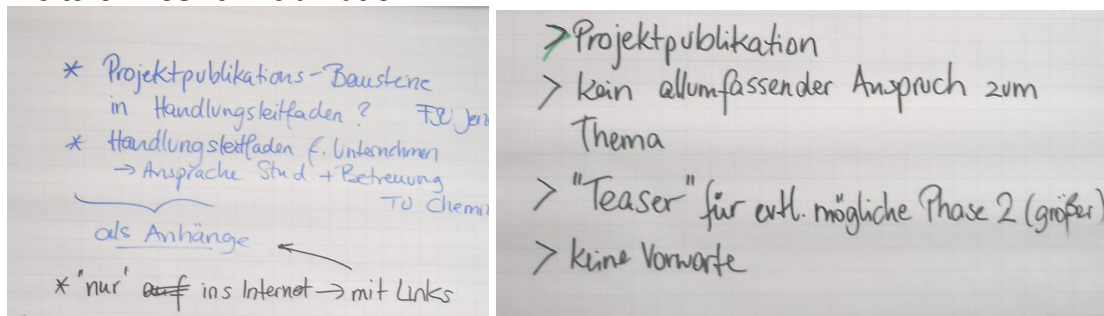 * Projektpublikations-Bausteine
in Handlungsleitfaden? FSU Jena
* Handlungsleitfaden f. Unternehmen
→ Ansprache Stud + Betreuung
TU Chemn
als Anhänge
* "nur" ~~auf~~ ins Internet → mit Links
> Projektpublikation
> kein allumfassender Anspruch zum
Thema
> "Teaser" für evtl. mögliche Phase 2 (größer)
> keine Vorworte